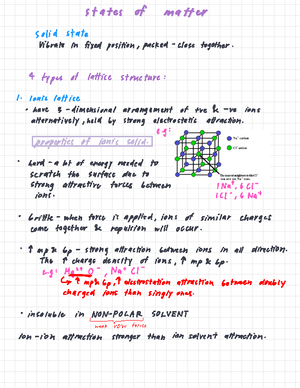 states of matter
solid state
Vibrate in fixed position, packed - close together.
4 types of lattice structure:
1. Ionic lattice
• have 3 - dimensional arrangement of +ve & -ve ions
alternatively, held by strong electrostatic attraction.
eg:
properties of ionic solid.
Na⁺ cation
Cl⁻ anion
• hard - a lot of energy needed to
scratch the surface due to
strong attractive forces between
ions.
1 Na⁺, 6 Cl⁻
1 Cl⁻, 6 Na⁺
• brittle - when force is applied, ions of similar charges
come together & repulsion will occur.
• ↑ mp & bp - strong attraction between ions in all direction.
The ↑ charge density of ions, ↑ mp & bp.
↑ mp & bp, ↑ electrostation attraction between doubly
charged ions than singly ones.
• insoluble in NON-POLAR SOLVENT
weak VDW forces
ion-ion attraction stronger than ion solvent attraction.